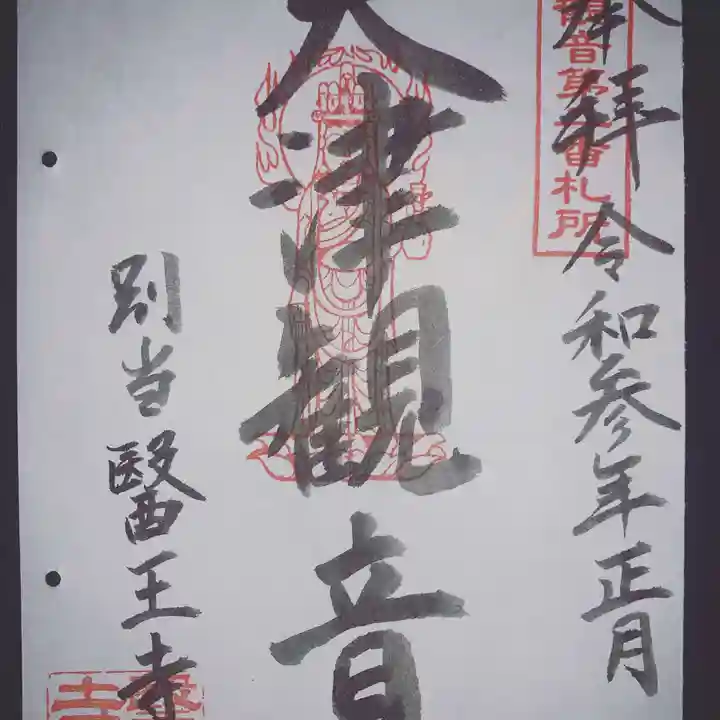 奉拝
令和参年正月
観音第二番札所
大津観音
別当醫王寺